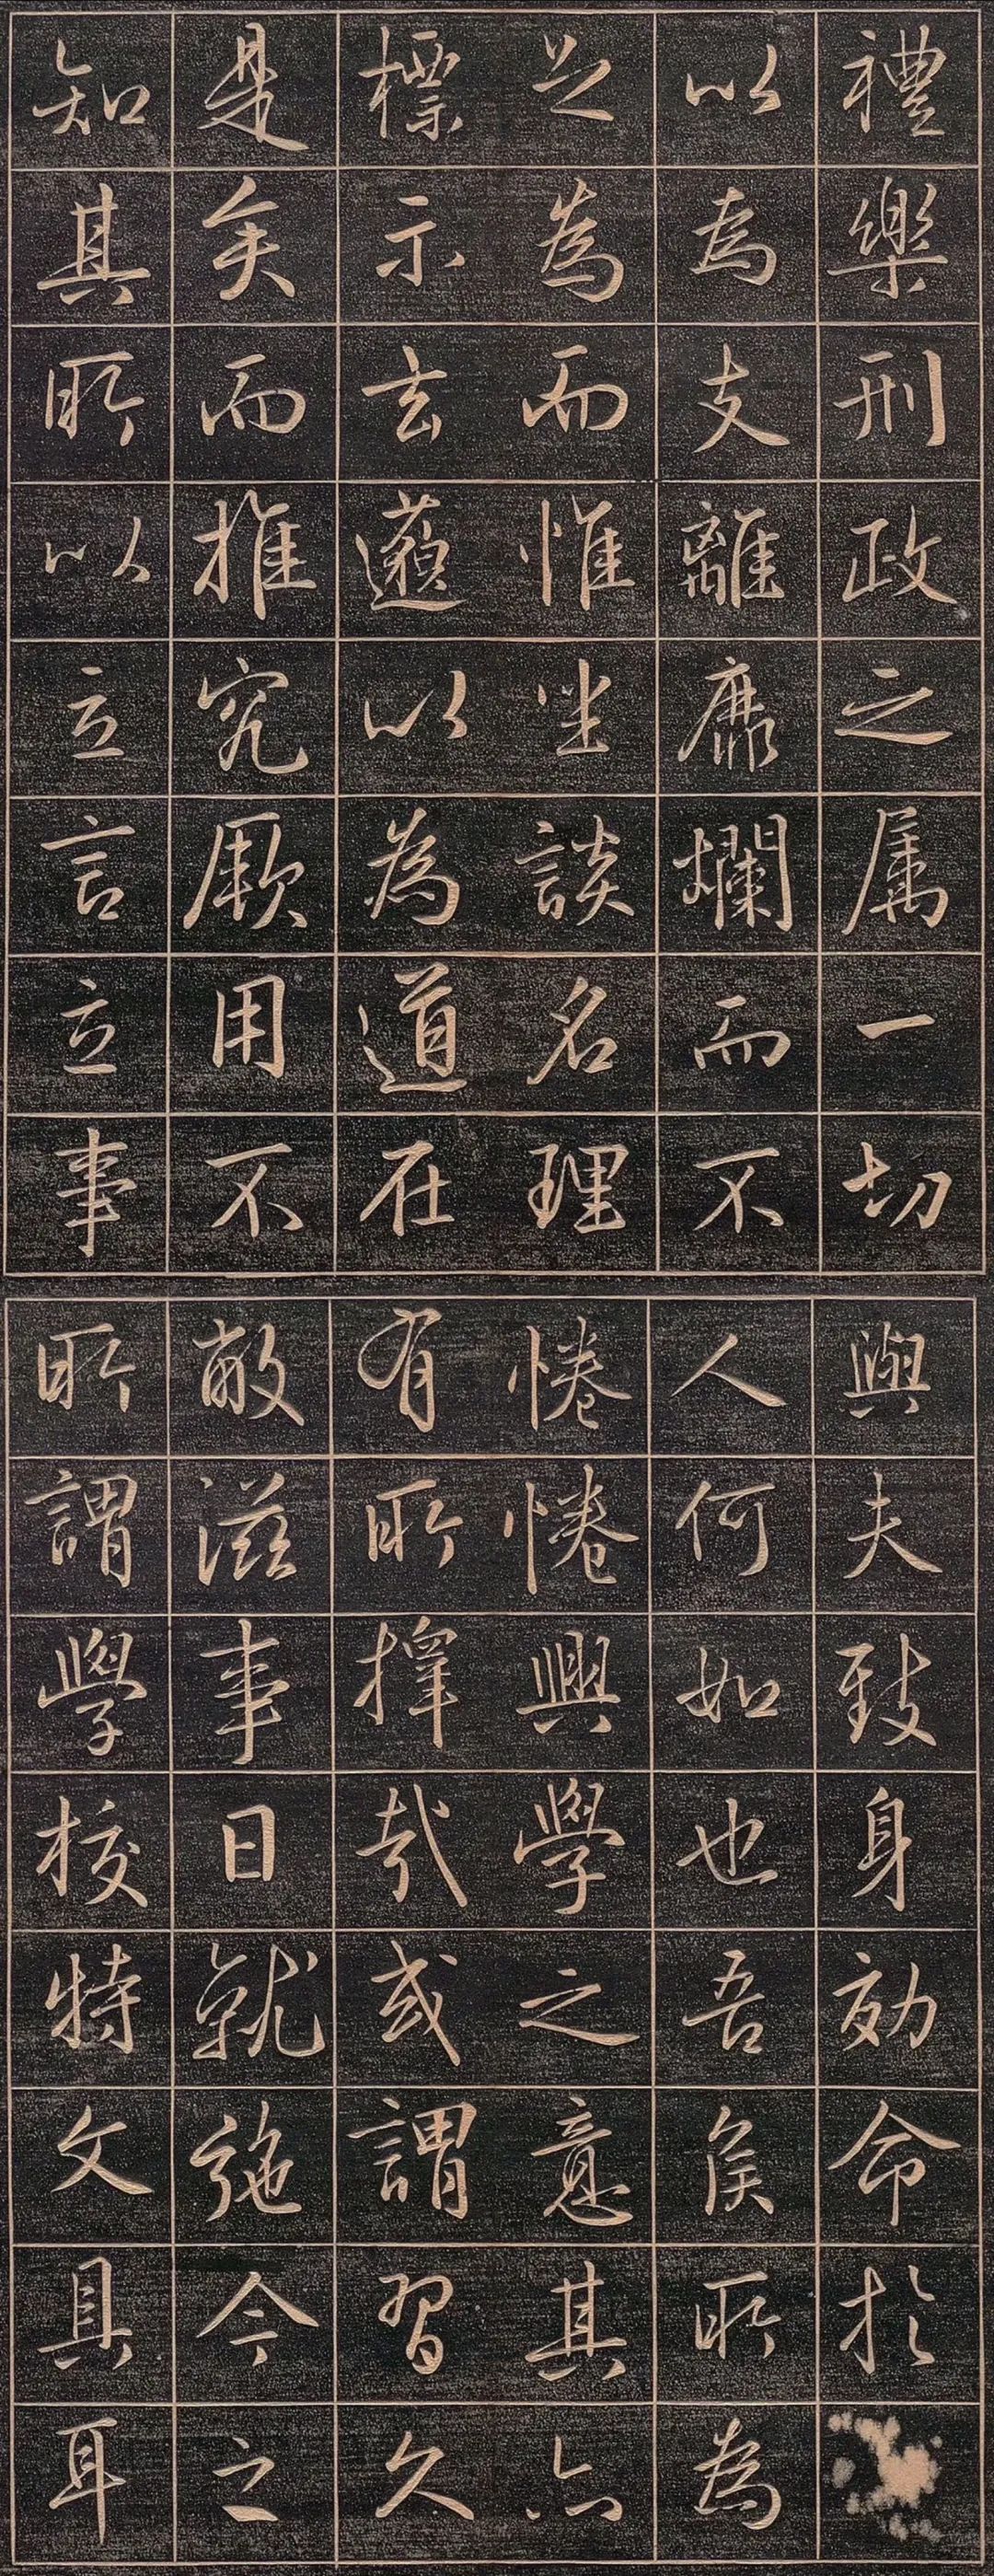 禮樂刑政之属一切
以為支離靡爛而不
足為而惟坐談名理
標示玄邈以為道在
是矣而推究厥用不
知其所以立言立事
與夫致身効命於
人何如也吾侯所為
惓惓興學之意其亦
有所擇哉或謂習久
敝滋事日就弛今之
所謂學校特文具耳